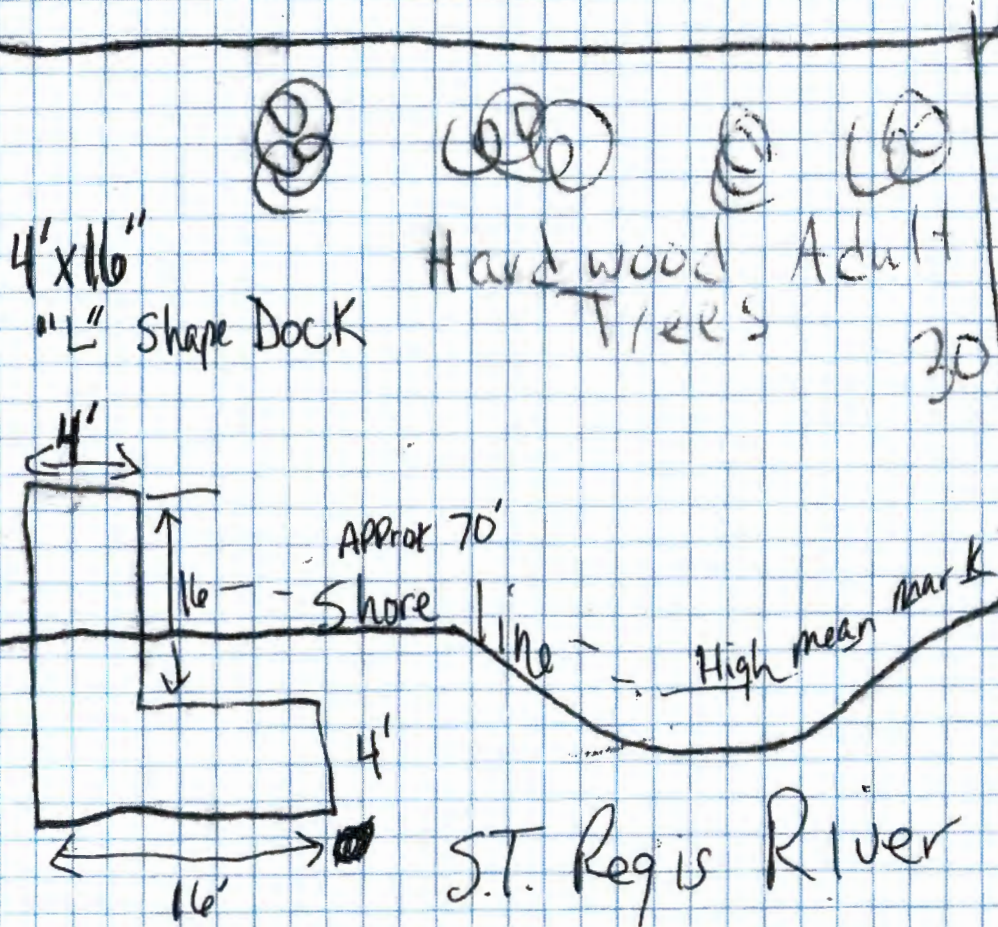 4'x16"
"L" Shape Dock
Hardwood Adult
Trees
30
4'
16
Approx 70'
Shore line
High mean mark
4'
16'
S.T. Regis River